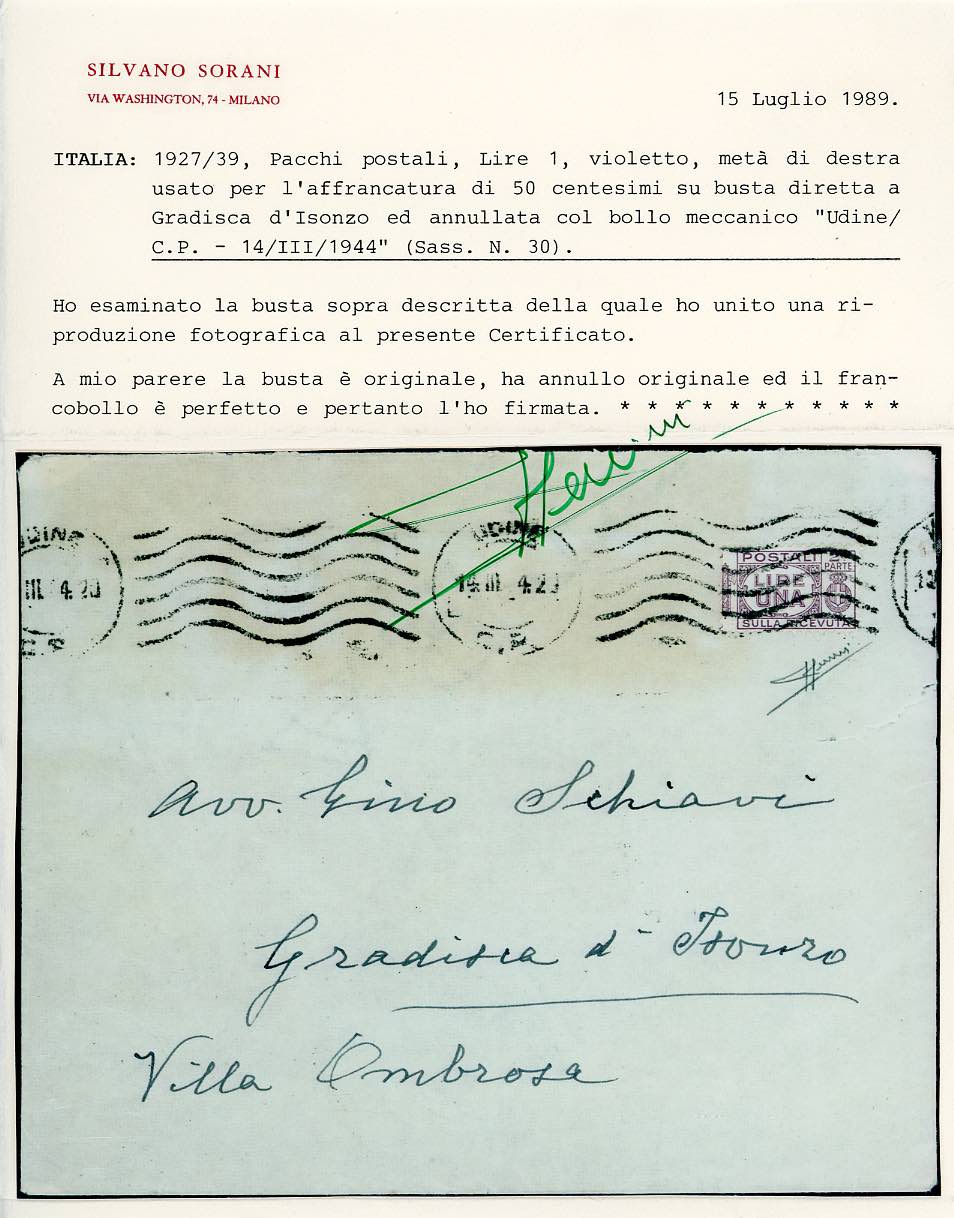 SILVANO SORANI
VIA WASHINGTON, 74 - MILANO
15 Luglio 1989.
ITALIA: 1927/39, Pacchi postali, Lire 1, violetto, metà di destra
usato per l'affrancatura di 50 centesimi su busta diretta a
Gradisca d'Isonzo ed annullata col bollo meccanico "Udine/
C.P. - 14/III/1944" (Sass. N. 30).
Ho esaminato la busta sopra descritta della quale ho unito una ri-
produzione fotografica al presente Certificato.
A mio parere la busta è originale, ha annullo originale ed il fran-
cobollo è perfetto e pertanto l'ho firmata. * * * * * * * * * * *
UDINE
III 4 20
UDINE
14 III 4 20
C.P.
POSTALI
PARTE
LIRE
UNA
SULLA RICEVUTA
Avv. Gino Schiavi
Gradisca d'Isonzo
Villa Ombrosa